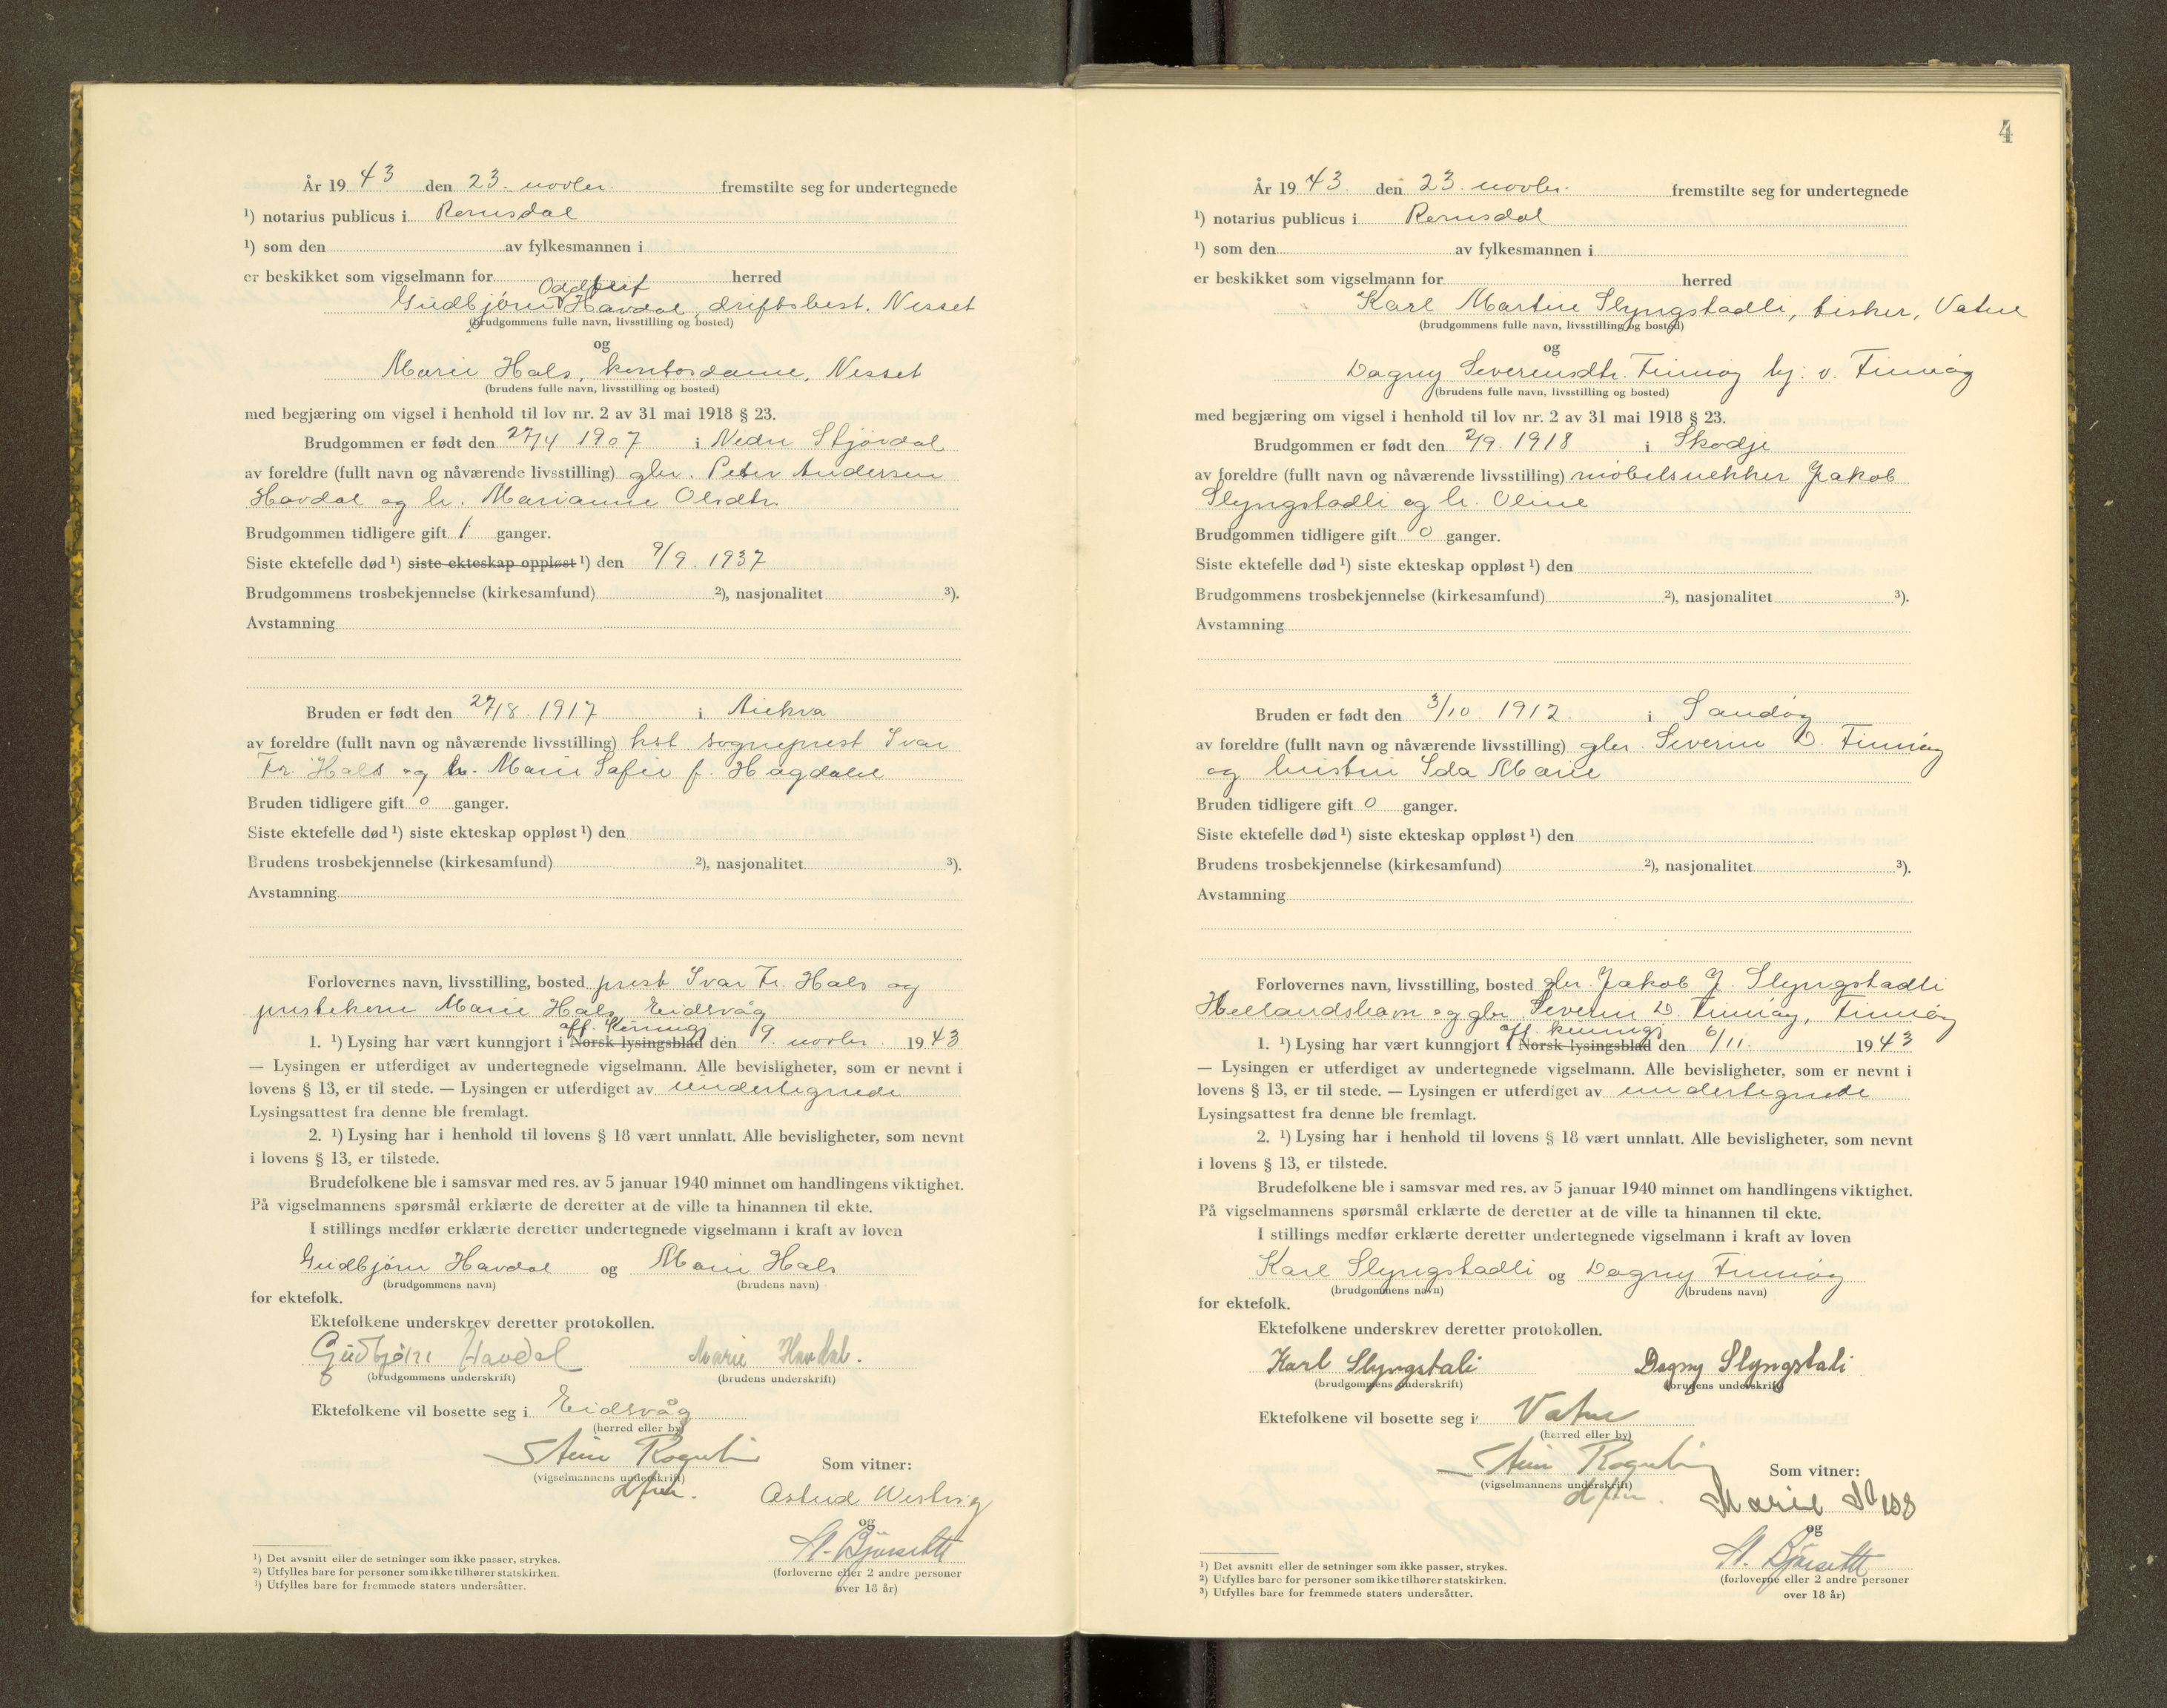 År 1943 den 23. novbr. fremstilte seg for undertegnede
¹) notarius publicus i Romsdal
¹) som den av fylkesmannen i
er beskikket som vigselmann for herred
Oddleif
Gudbjørn Havdal, driftsbest. Nesset
(brudgommens fulle navn, livsstilling og bosted)
og
Marie Hals, kontordame, Nesset
(brudens fulle navn, livsstilling og bosted)
med begjæring om vigsel i henhold til lov nr. 2 av 31 mai 1918 § 23.
Brudgommen er født den 27/4 1907 i Nedre Stjørdal
av foreldre (fullt navn og nåværende livsstilling) gbr. Peter Andersen
Havdal og h. Marianne Olsdtr.
Brudgommen tidligere gift 1 ganger.
Siste ektefelle død ¹) siste ekteskap oppløst ¹) den 9/9. 1937
Brudgommens trosbekjennelse (kirkesamfund) ²), nasjonalitet ³).
Avstamning
Bruden er født den 27/8. 1917 i
av foreldre (fullt navn og nåværende livsstilling) hst sogneprest Ivar
Fr. Hals og h. Marie Sofie f. Hagdahl
Bruden tidligere gift 0 ganger.
Siste ektefelle død ¹) siste ekteskap oppløst ¹) den
Brudens trosbekjennelse (kirkesamfund) ²), nasjonalitet ³).
Avstamning
Forlovernes navn, livsstilling, bosted prest Ivar Fr. Hals og
prestekone Marie Hals, Eidsvåg
off. kunng.
1. ¹) Lysing har vært kunngjort i Norsk lysingsblad den 9. novbr. 1943
— Lysingen er utferdiget av undertegnede vigselmann. Alle bevisligheter, som er nevnt i
lovens § 13, er til stede. — Lysingen er utferdiget av undertegnede
Lysingsattest fra denne ble fremlagt.
2. ¹) Lysing har i henhold til lovens § 18 vært unnlatt. Alle bevisligheter, som nevnt
i lovens § 13, er tilstede.
Brudefolkene ble i samsvar med res. av 5 januar 1940 minnet om handlingens viktighet.
På vigselmannens spørsmål erklærte de deretter at de ville ta hinannen til ekte.
I stillings medfør erklærte deretter undertegnede vigselmann i kraft av loven
Gudbjørn Havdal og Marie Hals
(brudgommens navn) (brudens navn)
for ektefolk.
Ektefolkene underskrev deretter protokollen.
Gudbjørn Havdal Marie Havdal.
(brudgommens underskrift) (brudens underskrift)
Ektefolkene vil bosette seg i Eidsvåg
(herred eller by)
Stein Rognli
(vigselmannens underskrift) Som vitner:
dfm. Astrid Westvig
og
St. Bjørseth
(forloverne eller 2 andre personer
over 18 år)
¹) Det avsnitt eller de setninger som ikke passer, strykes.
²) Utfylles bare for personer som ikke tilhører statskirken.
³) Utfylles bare for fremmede staters undersåtter.
4
År 1943. den 23. novbr. fremstilte seg for undertegnede
¹) notarius publicus i Romsdal
¹) som den av fylkesmannen i
er beskikket som vigselmann for herred
Karl Martin Slyngstadli, fisker, Vatne
(brudgommens fulle navn, livsstilling og bosted)
og
Dagny Severinsdtr. Finnøy hj. v. Finnøy
(brudens fulle navn, livsstilling og bosted)
med begjæring om vigsel i henhold til lov nr. 2 av 31 mai 1918 § 23.
Brudgommen er født den 2/9. 1918 i Skodje
av foreldre (fullt navn og nåværende livsstilling) møbelsnekker Jakob
Slyngstadli og h. Oline
Brudgommen tidligere gift 0 ganger.
Siste ektefelle død ¹) siste ekteskap oppløst ¹) den
Brudgommens trosbekjennelse (kirkesamfund) ²), nasjonalitet ³).
Avstamning
Bruden er født den 3/10. 1912. i Sandøy
av foreldre (fullt navn og nåværende livsstilling) gbr. Severin D. Finnøy
og hustru Ida Marie
Bruden tidligere gift 0 ganger.
Siste ektefelle død ¹) siste ekteskap oppløst ¹) den
Brudens trosbekjennelse (kirkesamfund) ²), nasjonalitet ³).
Avstamning
Forlovernes navn, livsstilling, bosted gbr. Jakob J. Slyngstadli
Hellandshamn og gbr. Severin D. Finnøy, Finnøy
off. kunng.
1. ¹) Lysing har vært kunngjort i Norsk lysingsblad den 6/11. 1943
— Lysingen er utferdiget av undertegnede vigselmann. Alle bevisligheter, som er nevnt i
lovens § 13, er til stede. — Lysingen er utferdiget av undertegnede
Lysingsattest fra denne ble fremlagt.
2. ¹) Lysing har i henhold til lovens § 18 vært unnlatt. Alle bevisligheter, som nevnt
i lovens § 13, er tilstede.
Brudefolkene ble i samsvar med res. av 5 januar 1940 minnet om handlingens viktighet.
På vigselmannens spørsmål erklærte de deretter at de ville ta hinannen til ekte.
I stillings medfør erklærte deretter undertegnede vigselmann i kraft av loven
Karl Slyngstadli og Dagny Finnøy
(brudgommens navn) (brudens navn)
for ektefolk.
Ektefolkene underskrev deretter protokollen.
Karl Slyngstali Dagny Slyngstali
(brudgommens underskrift) (brudens underskrift)
Ektefolkene vil bosette seg i Vatne
(herred eller by)
Stein Rognli
(vigselmannens underskrift) Som vitner:
dfm. Marie
og
St. Bjørseth
(forloverne eller 2 andre personer
over 18 år)
¹) Det avsnitt eller de setninger som ikke passer, strykes.
²) Utfylles bare for personer som ikke tilhører statskirken.
³) Utfylles bare for fremmede staters undersåtter.